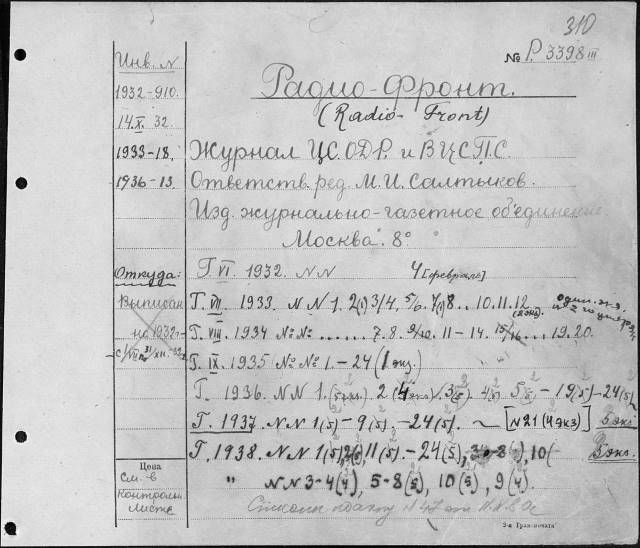 310
№ Р. 3398 III
Инв. N
1932-910.
14.X. 32.
1933-18.
1936-13.
Откуда:
Выписан
на 1932г.
Цена
См. в
контрольн
листе
Радио-Фронт.
(Radio-Front)
Журнал ЦС.ОДР. и ВЦСПС.
Ответств. ред. М.И. Салтыков.
Изд. журнально-газетное объединение.
Москва. 8°
Г. VI. 1932. NN 4 [февраль]
Г. VII. 1933. NN 1. 2(1) 3/4, 5/6. 7(1) 8... 10. 11. 12.
Г. VIII. 1934 №№ ...... 7. 8. 9/10. 11-14. 15/16... 19. 20.
Г. IX. 1935 №№ 1.-24 (1 экз.)
Г. 1936. NN 1. 2 (4 экз) 3(5). 4(5) 5(5) - 19(5) - 24(5)
Г. 1937. NN 1(5) - 9(5). -24(5). ~ [N21 (4 экз)] 3 экз.
Г. 1938. NN 1(5), 11(5). - 24(5), 10( 3 экз.
" NN 3-4(4), 5-8(5), 10(5), 9(4).